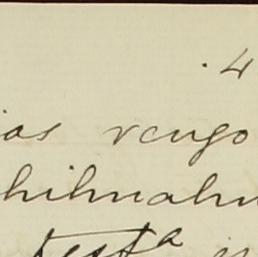 . 4
ias vengo
hihuahu
testa